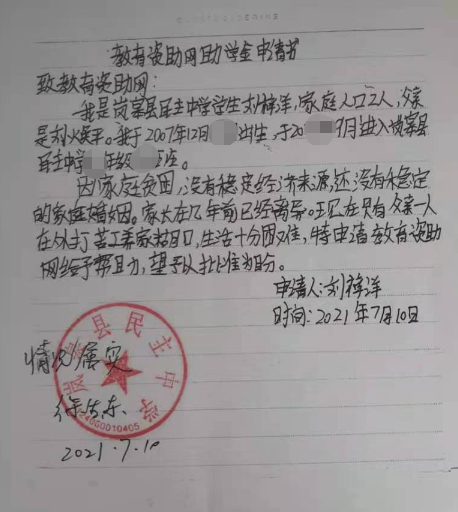 教育资助网助学金申请书
致教育资助网：
我是岚皋县民主中学学生刘祥洋，家庭人口2人，父亲
是刘焕平。我于2007年12月出生，于20 月进入岚皋县
民主中学 年级 班。
因家庭贫困，没有稳定经济来源，还没有稳定
的家庭婚姻。家长在几年前已经离异。现在只有父亲一人
在外打苦工养家糊口，生活十分困难，特申请教育资助
网给予帮助，望予以批准为盼。
申请人：刘祥洋
时间：2021年7月10日
岚皋县民主中学
情况属实
徐 东
6124000010405
2021.7.10